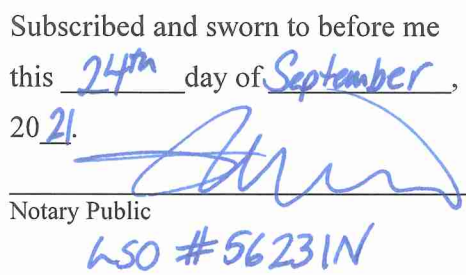 Subscribed and sworn to before me
this 24th day of September,
2021.
Notary Public
LSO #56231N